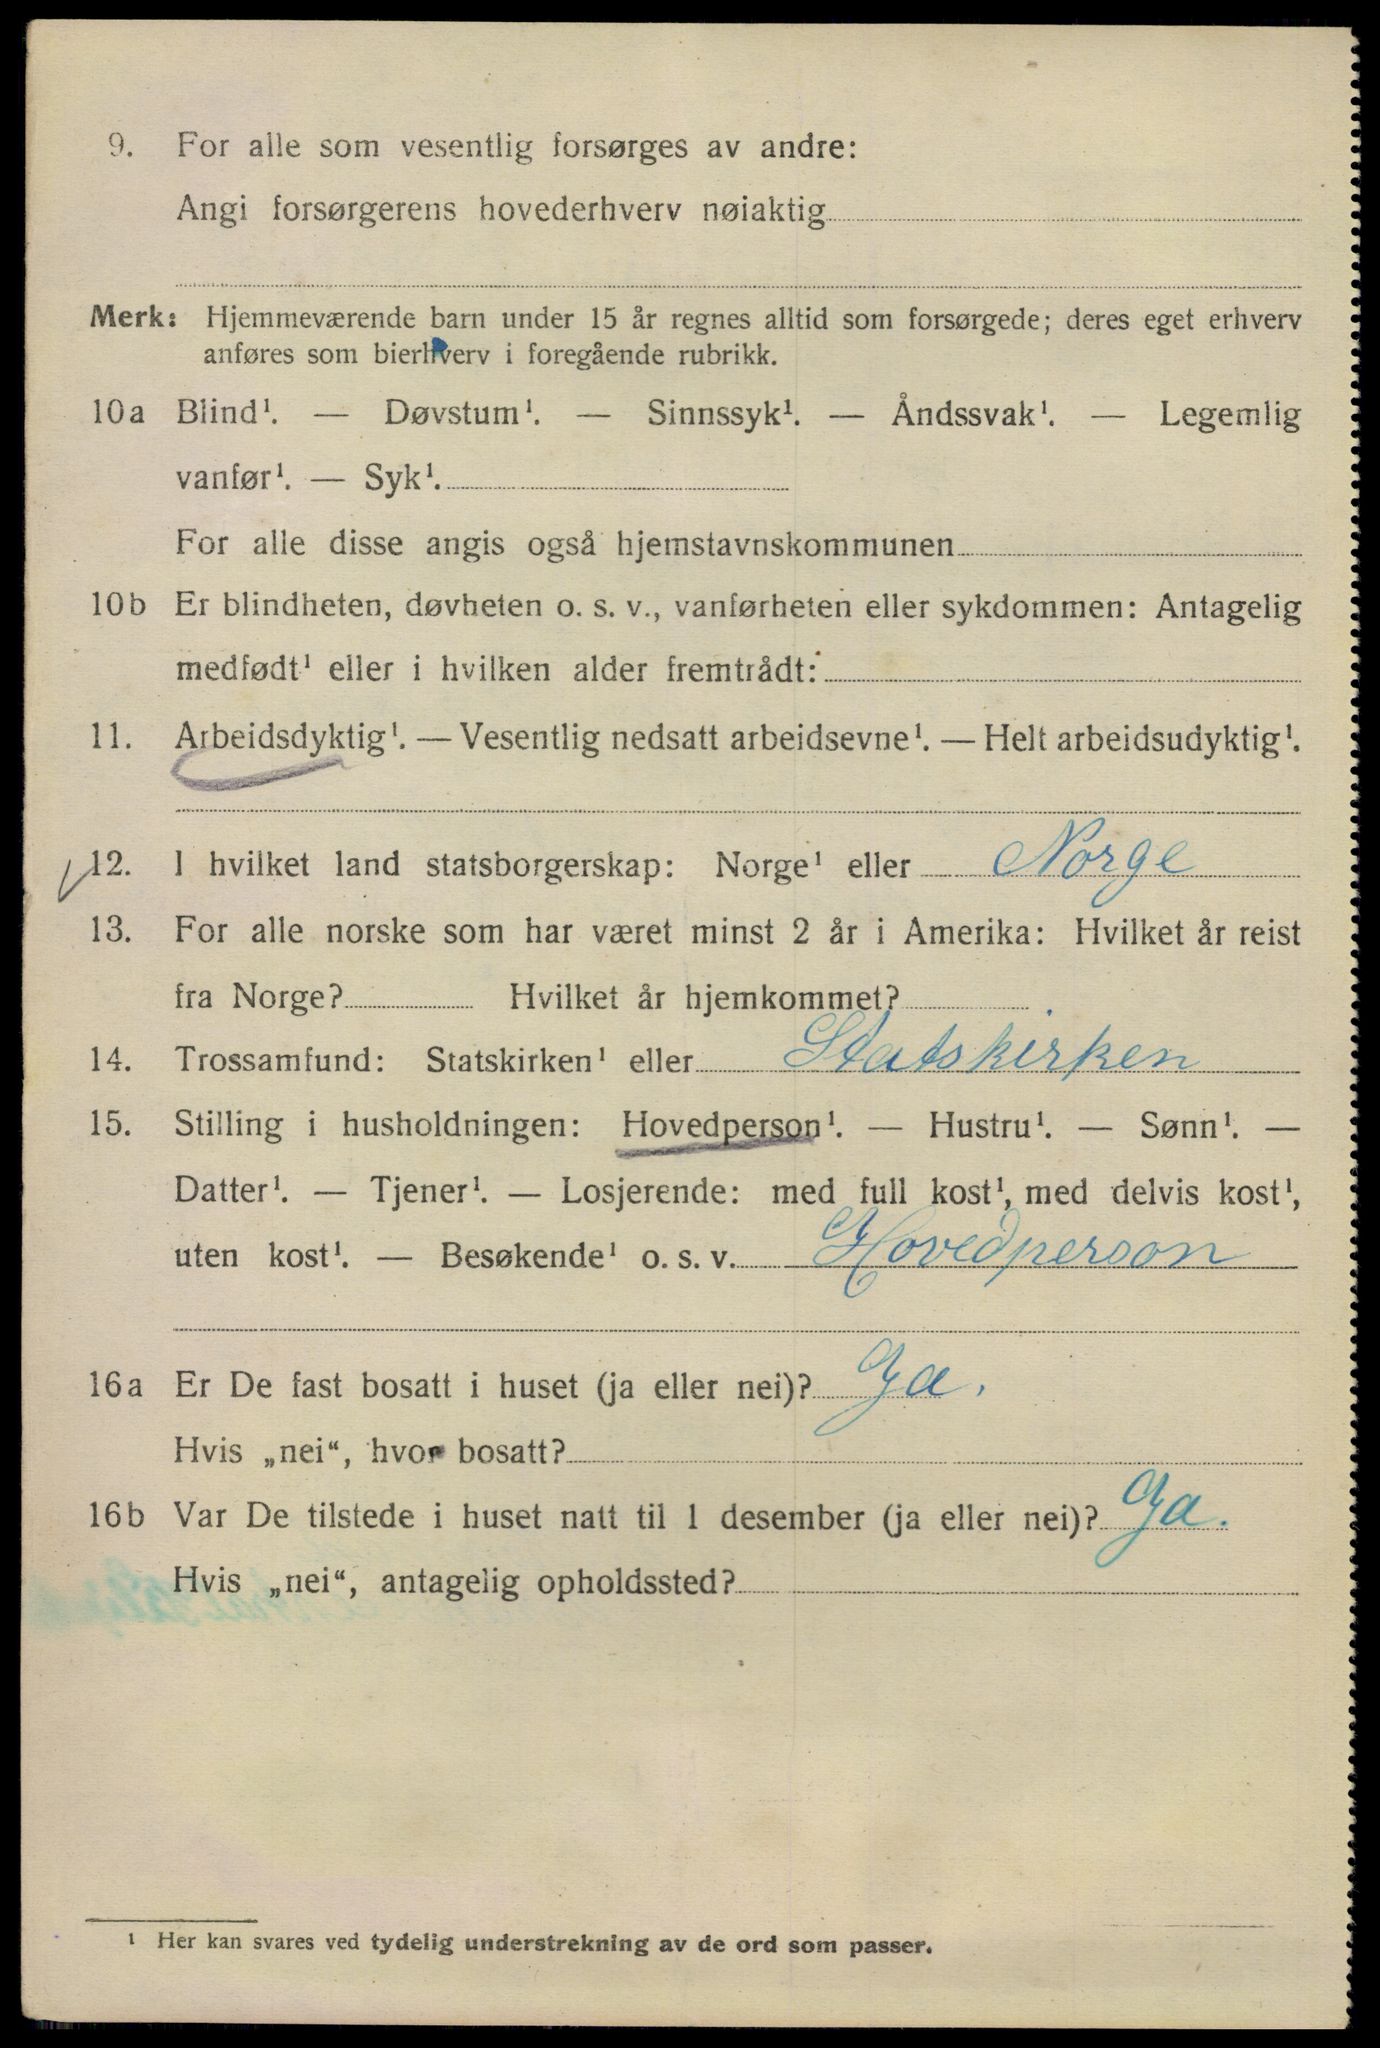 9. For alle som vesentlig forsørges av andre:
Angi forsørgerens hovederhverv nøiaktig
Merk: Hjemmeværende barn under 15 år regnes alltid som forsørgede; deres eget erhverv
anføres som bierhverv i foregående rubrikk.
10a Blind¹. — Døvstum¹. — Sinnssyk¹. — Åndssvak¹. — Legemlig
vanfør¹. — Syk¹.
For alle disse angis også hjemstavnskommunen
10b Er blindheten, døvheten o. s. v., vanførheten eller sykdommen: Antagelig
medfødt¹ eller i hvilken alder fremtrådt:
11. Arbeidsdyktig¹. — Vesentlig nedsatt arbeidsevne¹. — Helt arbeidsudyktig¹.
12. I hvilket land statsborgerskap: Norge¹ eller Norge
13. For alle norske som har været minst 2 år i Amerika: Hvilket år reist
fra Norge? Hvilket år hjemkommet?
14. Trossamfund: Statskirken¹ eller Statskirken
15. Stilling i husholdningen: Hovedperson¹. — Hustru¹. — Sønn¹. —
Datter¹. — Tjener¹. — Losjerende: med full kost¹, med delvis kost¹,
uten kost¹. — Besøkende¹ o. s. v. Hovedperson
16a Er De fast bosatt i huset (ja eller nei)? Ja.
Hvis „nei“, hvor bosatt?
16b Var De tilstede i huset natt til 1 desember (ja eller nei)? Ja.
Hvis „nei“, antagelig opholdssted?
¹ Her kan svares ved tydelig understrekning av de ord som passer.